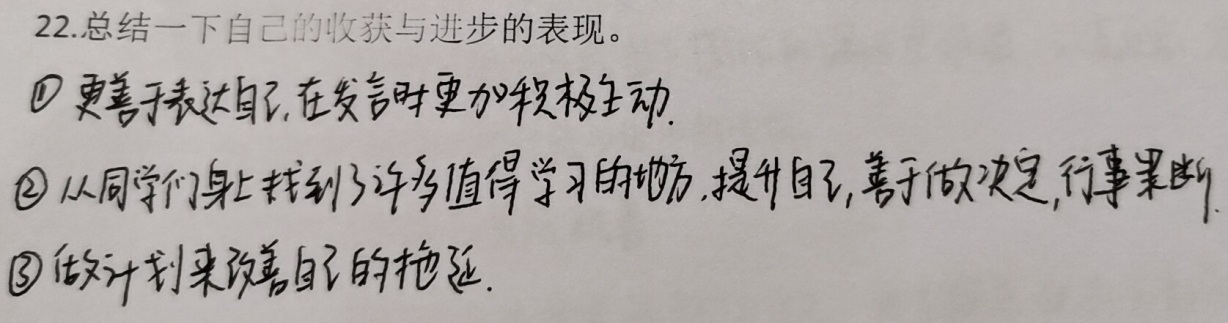 22.总结一下自己的收获与进步的表现。
①更善于表达自己,在发言时更加积极主动.
②从同学们身上找到了许多值得学习的地方,提升自己,善于做决定,行事果断.
③做计划来改善自己的拖延.